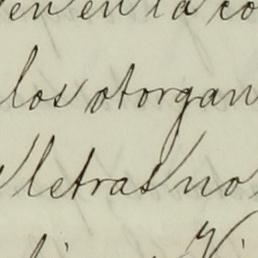 en en la co
los otorgan
letras no